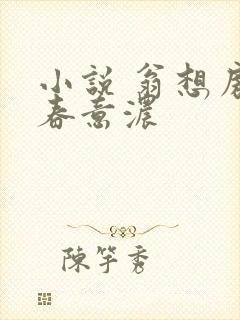 小説 翁想
春意濃
陳竿秀